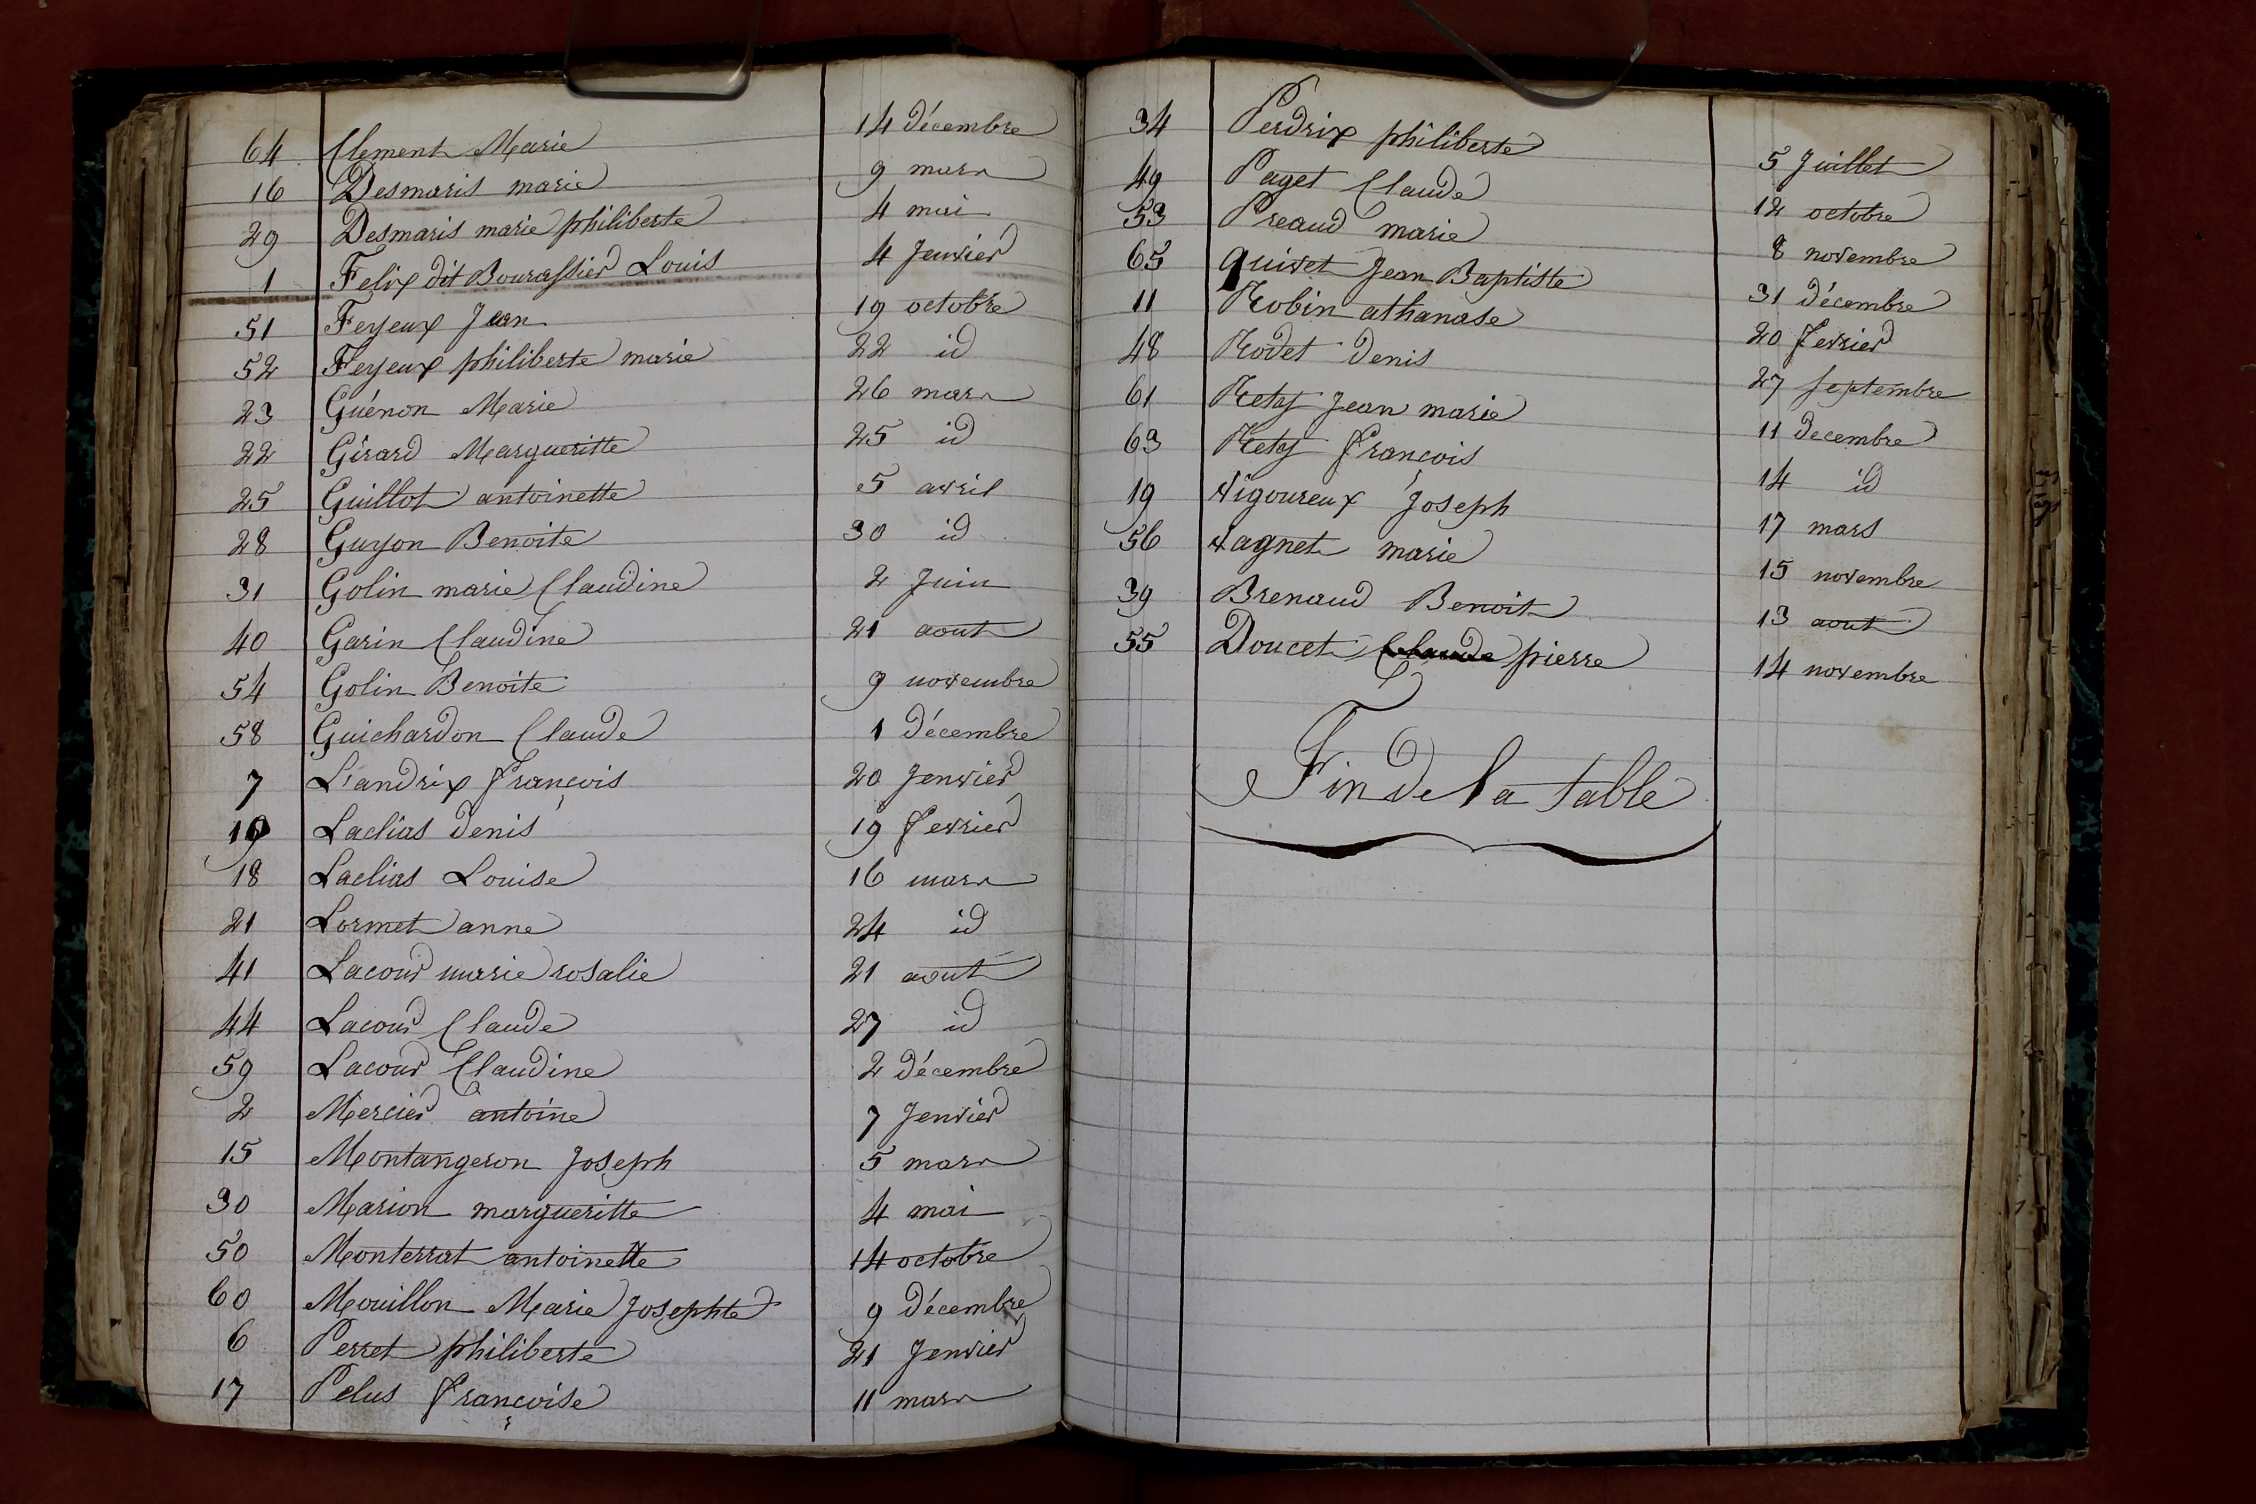 64 Clement Marie 14 décembre
16 Desmaris marie 9 mars
29 Desmaris marie philiberte 4 mai
1 Felix dit Bourassier Louis 4 Jenvier
51 Feyeux Jean 19 octobre
52 Feyeux philiberte marie 22 id
23 Guénon Marie 26 mars
22 Girard Margueritte 25 id
25 Guillot antoinette 5 avril
28 Guyon Benoite 30 id
31 Golin marie Claudine 2 Juin
40 Garin Claudine 21 aout
54 Golin Benoite 9 novembre
58 Guichardon Claude 1 décembre
7 Liandrix François 20 Jenvier
10 Laclias denis 19 fevrier
18 Laclias Louise 16 mars
21 Lormet anne 24 id
41 Lacour marie rosalie 21 aout
44 Lacour Claude 27 id
59 Lacour Claudine 2 décembre
2 Mercier antoine 7 Jenvier
15 Montangeron Joseph 5 mars
30 Marion margueritte 4 mai
50 Monterrat antoinette 14 octobre
60 Mouillon Marie Josephte 9 décembre
6 Perret philiberte 21 Jenvier
17 Pelus françoise 11 mars
34 Perdrix philiberte 5 Juillet
49 Paget Claude 12 octobre
53 Preaud marie 8 novembre
65 quivet Jean Baptiste 31 décembre
11 Robin athanase 20 fevrier
48 Rodet denis 27 septembre
61 Rety Jean marie 11 decembre
63 Rety François 14 id
19 Vigoureux Joseph 17 mars
56 Vagnet marie 15 novembre
39 Brenaud Benoit 13 aout
55 Doucet Claude pierre 14 novembre
Fin de la table